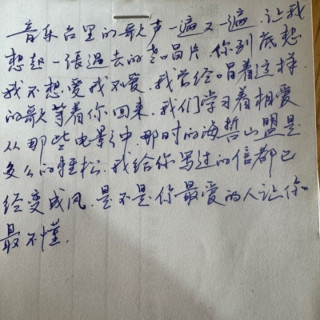 音乐台里的歌声一遍又一遍，让我
想起一张过去的老唱片，你到底想
我不想，爱我不爱，我曾经唱着这样
的歌等着你回来，我们学习着相爱
从那些电影中，那时的海誓山盟是
多么的轻松，我给你写过的信都已
经变成风，是不是你最爱的人让你
最不懂。